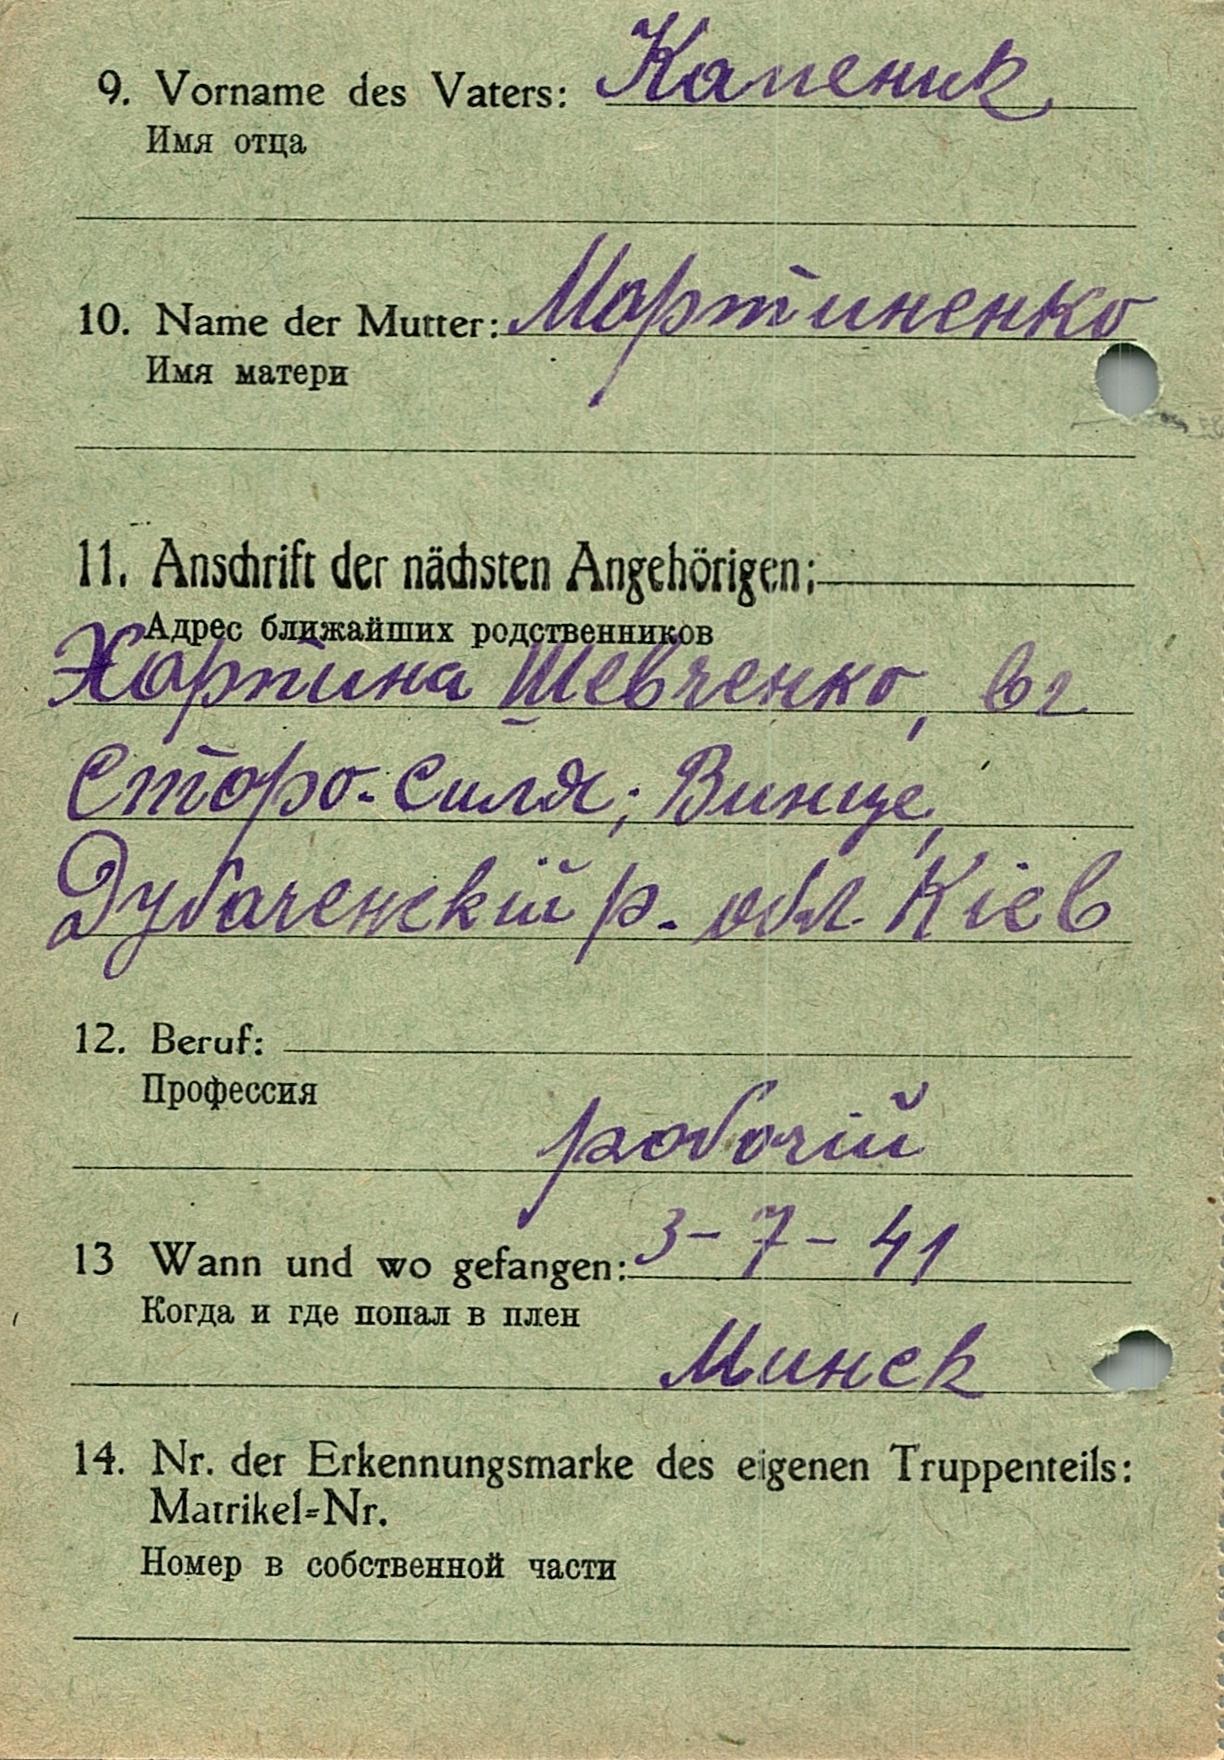 9. Vorname des Vaters: Каленик
Имя отца
10. Name der Mutter: Мартиненко
Имя матери
11. Anschrift der nächsten Angehörigen:
Адрес ближайших родственников
Хартина Шевченко,
Старо-Силя; Винце,
р. обл. Кіев
12. Beruf:
Профессия
рабочій
13 Wann und wo gefangen: 3-7-41
Когда и где попал в плен
Минск
14. Nr. der Erkennungsmarke des eigenen Truppenteils:
Matrikel=Nr.
Номер в собственной части